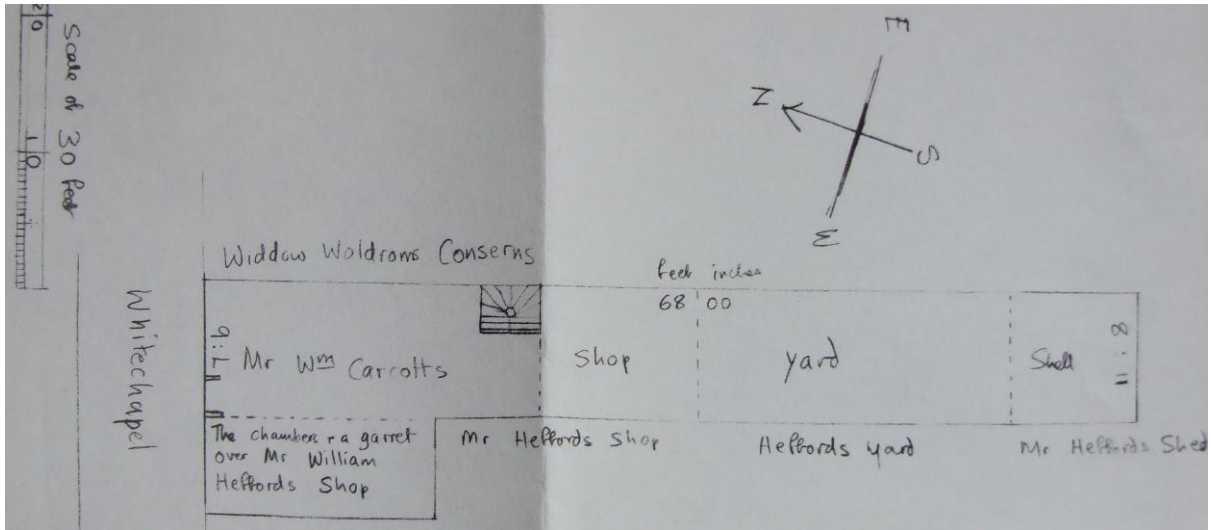 20
10
Scale of 30 feet
E
N
S
W
Widdow Woldroms Conserns
feet inches
68 00
Whitechapel
9:7
Mr Wm Carrotts
Shop
yard
Shed
8:11
The chambers & a garret
over Mr William
Heffords Shop
Mr Heffords Shop
Heffords yard
Mr Heffords Shed